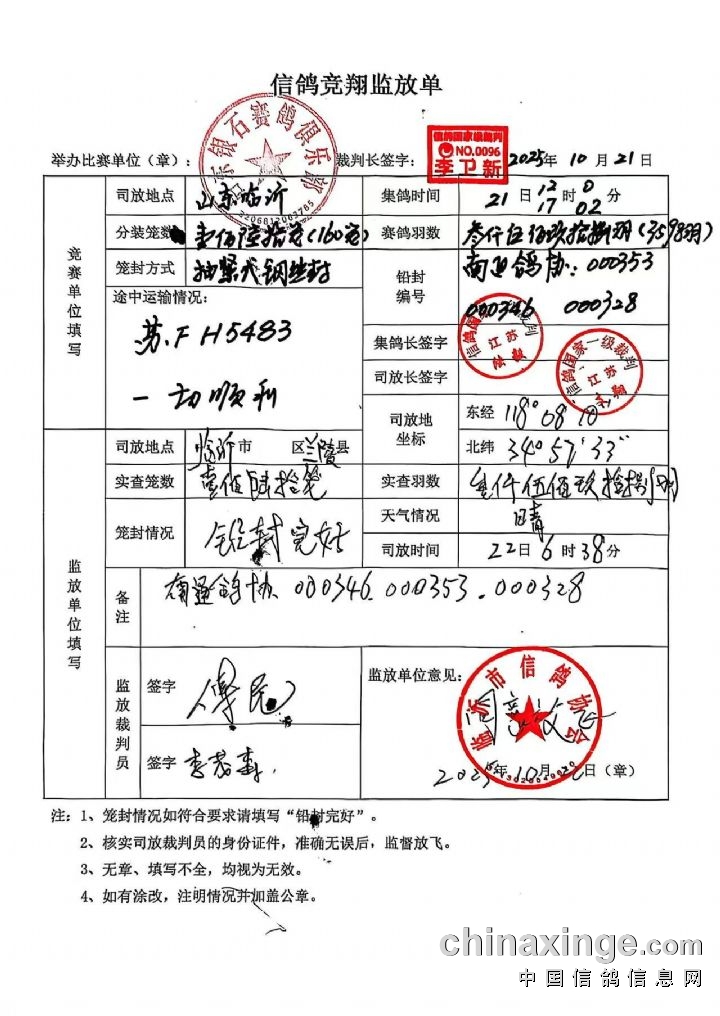 信鸽竞翔监放单
银石赛鸽俱乐部
信鸽国家级裁判
NO.0096
李卫新
举办比赛单位（章）： 裁判长签字： 2025年 10月21日
竞赛单位填写
司放地点 山东临沂 集鸽时间 21日 12 17 时 0 02 分
分装笼数 壹佰陆拾壳(160壳) 赛鸽羽数 叁仟伍佰玖拾捌羽(3598羽)
笼封方式 抽紧式钢丝封 铅封编号 南通鸽协：000353
000346 000328
途中运输情况：
苏.F H5483
一切顺利
集鸽长签字 信鸽国家 裁判 江苏
司放长签字 信鸽国家一级裁判 江苏
司放地坐标 东经 118°08′10″
北纬 34°57′33″
监放单位填写
司放地点 临沂市 区兰陵县 实查羽数
实查笼数 壹佰陆拾笼
笼封情况 铅封完好 天气情况 晴
司放时间 22日6时38分
备注 南通鸽协 000346.000353.000328
监放裁判员 签字
签字
监放单位意见：
临沂市信鸽协会
同意放飞
2025年10月22日（章）
注：1、笼封情况如符合要求请填写“铅封完好”。
2、核实司放裁判员的身份证件，准确无误后，监督放飞。
3、无章、填写不全，均视为无效。
4、如有涂改，注明情况并加盖公章。
chinaxinge.com
中国信鸽信息网